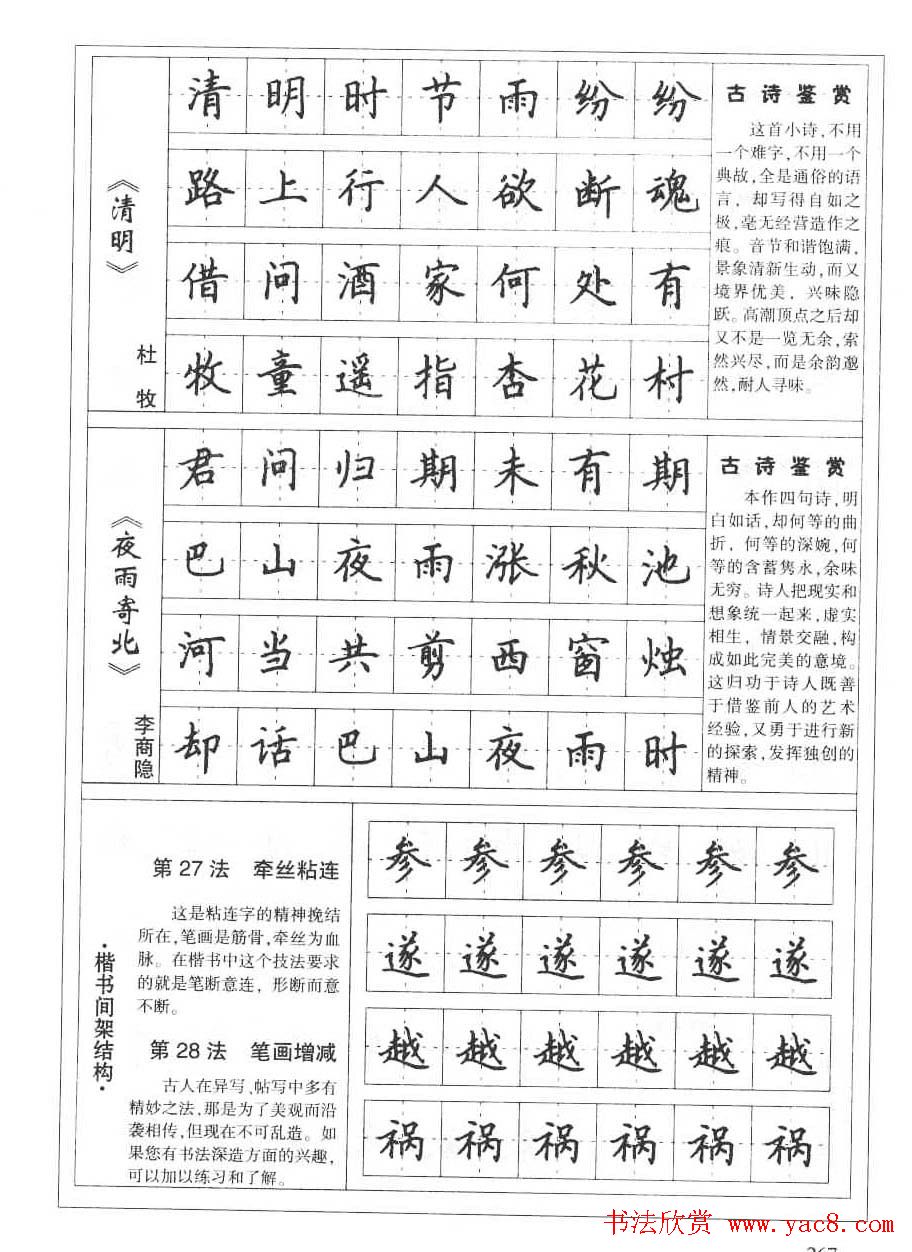 《清明》
杜牧
清明时节雨纷纷
路上行人欲断魂
借问酒家何处有
牧童遥指杏花村
古诗鉴赏
这首小诗,不用
一个难字,不用一个
典故,全是通俗的语
言，却写得自如之
极,毫无经营造作之
痕。音节和谐饱满,
景象清新生动,而又
境界优美，兴味隐
跃。高潮顶点之后却
又不是一览无余,索
然兴尽,而是余韵邈
然,耐人寻味。
《夜雨寄北》
李商隐
君问归期未有期
巴山夜雨涨秋池
河当共剪西窗烛
却话巴山夜雨时
古诗鉴赏
本作四句诗,明
白如话,却何等的曲
折，何等的深婉,何
等的含蓄隽永,余味
无穷。诗人把现实和
想象统一起来,虚实
相生，情景交融,构
成如此完美的意境。
这归功于诗人既善
于借鉴前人的艺术
经验,又勇于进行新
的探索,发挥独创的
精神。
·楷书间架结构·
第27法 牵丝粘连
这是粘连字的精神挽结
所在,笔画是筋骨,牵丝为血
脉。在楷书中这个技法要求
的就是笔断意连，形断而意
不断。
第28法 笔画增减
古人在异写,帖写中多有
精妙之法,那是为了美观而沿
袭相传,但现在不可乱造。如
果您有书法深造方面的兴趣,
可以加以练习和了解。
参参参参参参
遂遂遂遂遂遂
越越越越越越
祸祸祸祸祸祸
书法欣赏 www.yac8.com
267